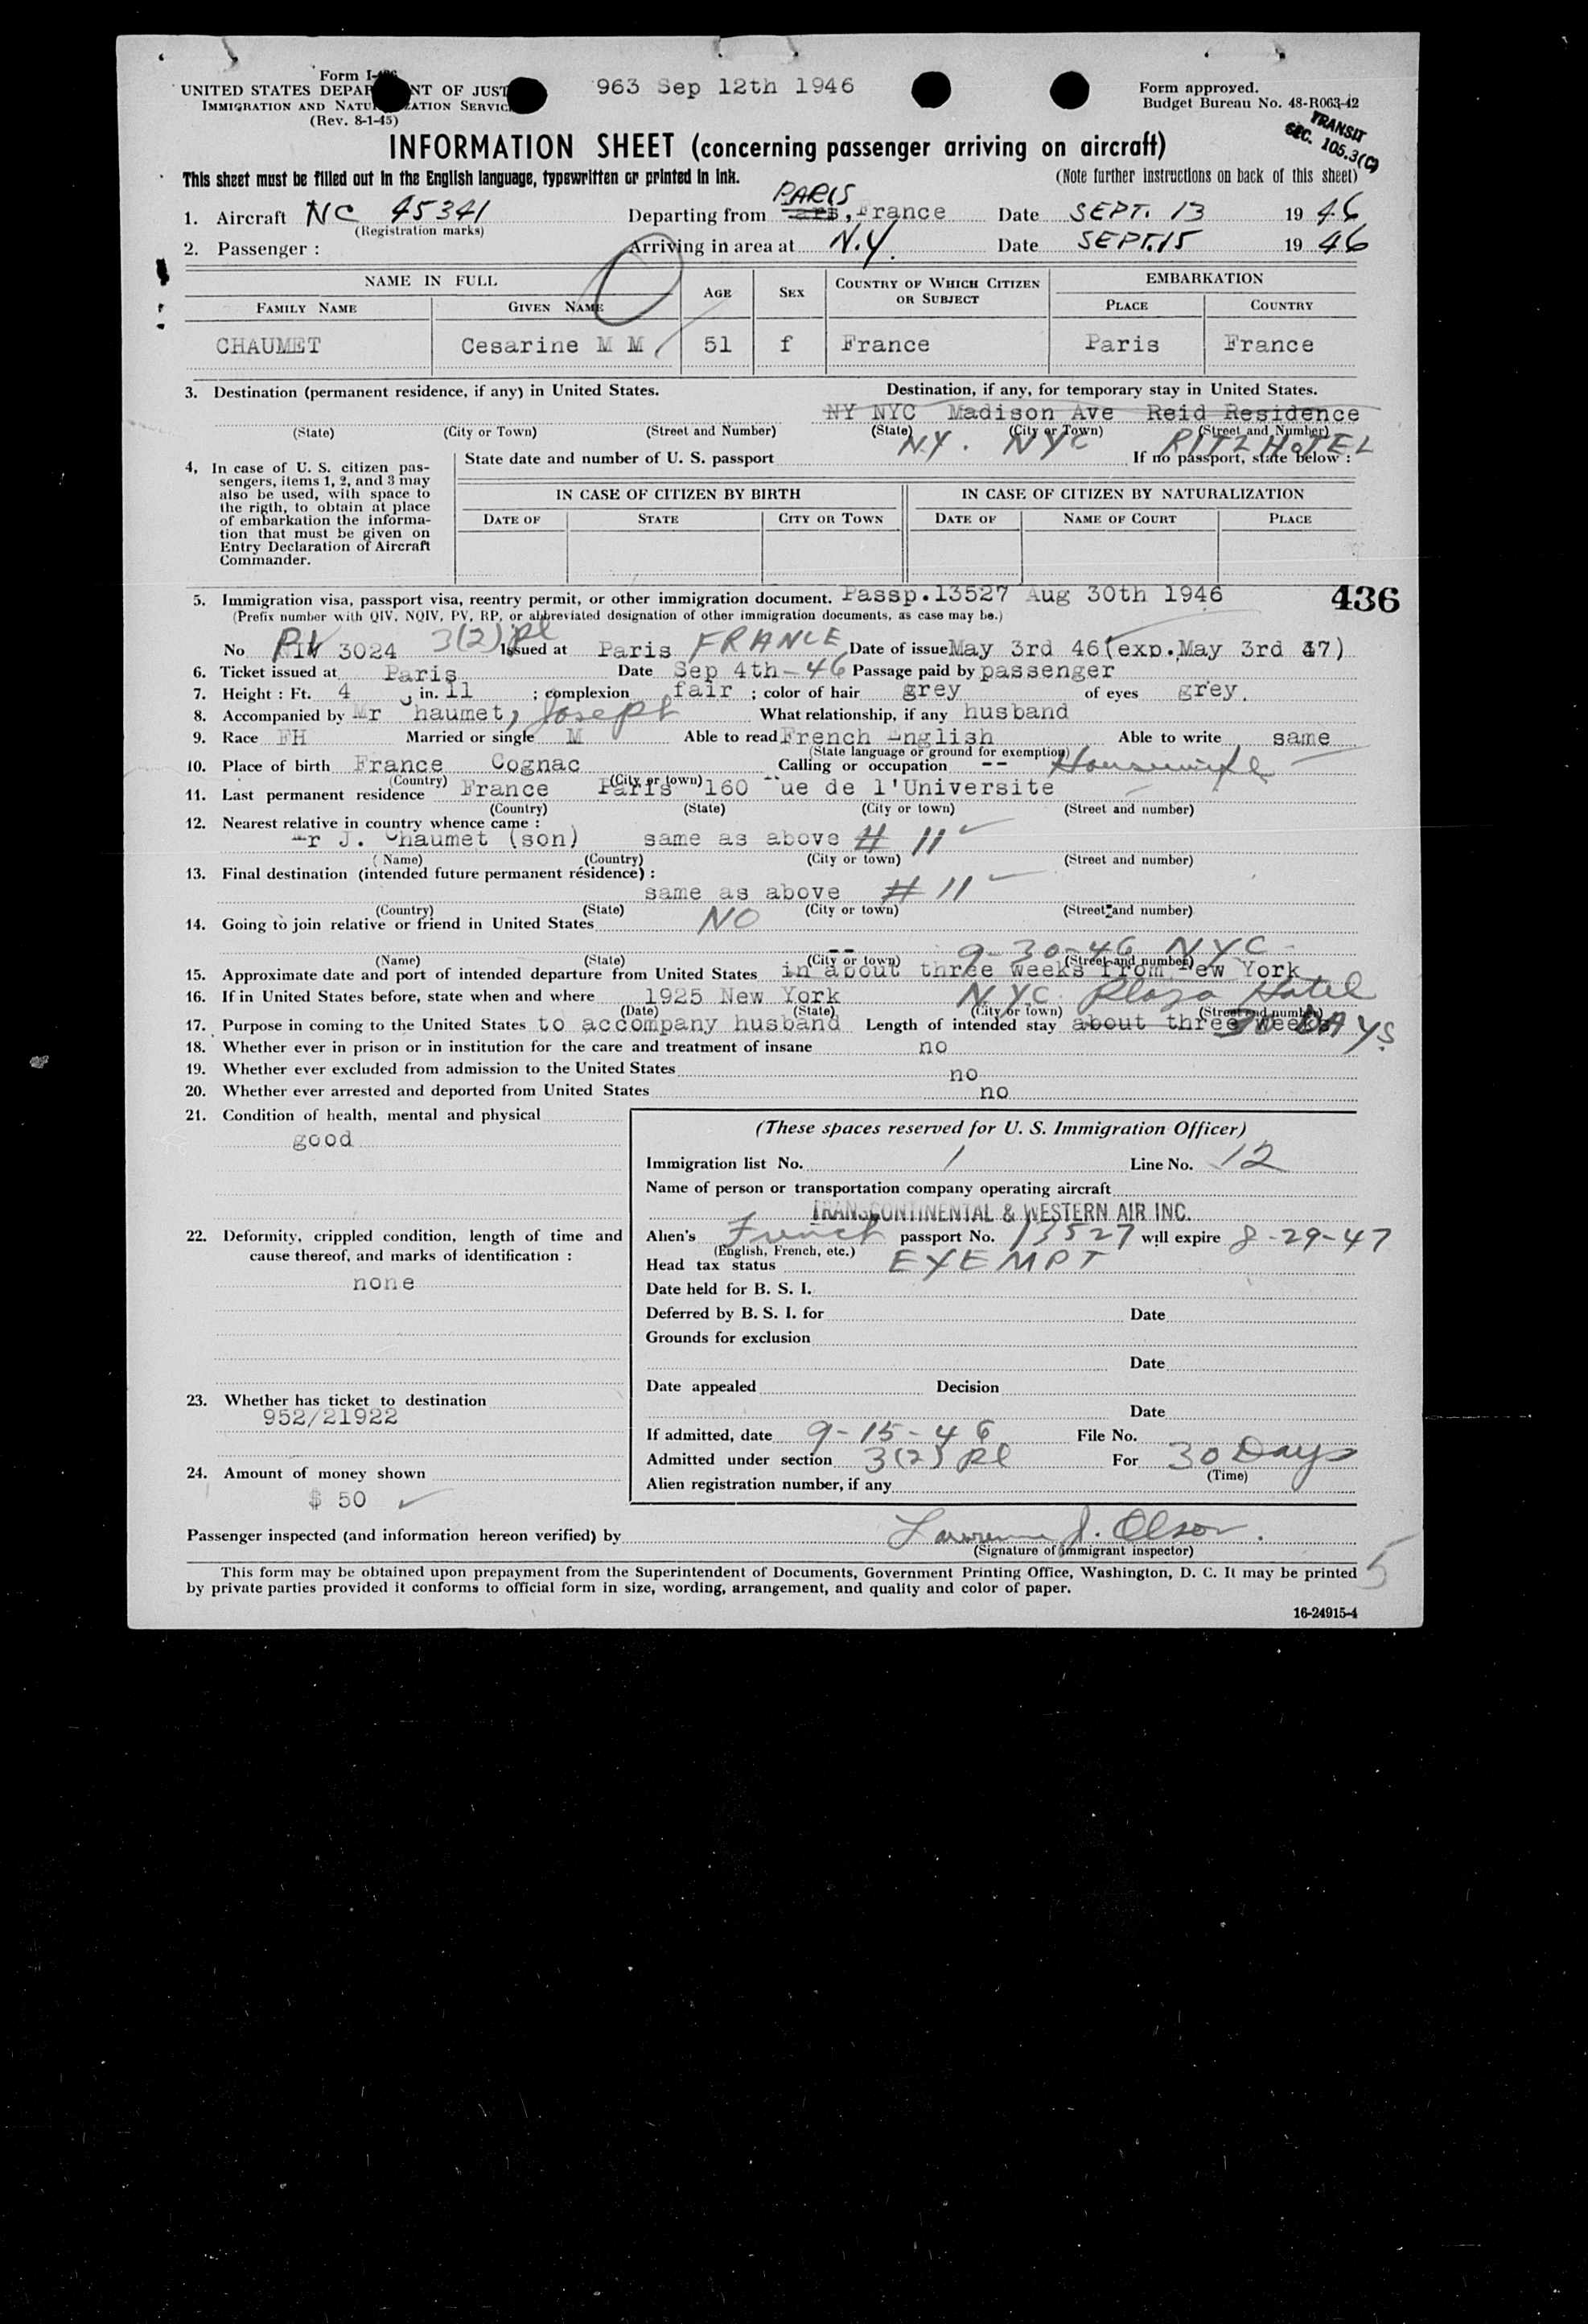 Form I-
UNITED STATES DEPAR NT OF JUST
IMMIGRATION AND NATU ZATION SERVIC
(Rev. 8-1-45)
963 Sep 12th 1946
Form approved.
Budget Bureau No. 48-R063-42
TRANSIT
SEC. 105.3(C)
INFORMATION SHEET (concerning passenger arriving on aircraft)
This sheet must be filled out in the English language, typewritten or printed in ink.
(Note further instructions on back of this sheet)
PARIS
1. Aircraft NC 45341 Departing from , France Date SEPT. 13 19 46
(Registration marks)
2. Passenger : Arriving in area at N.Y. Date SEPT.15 19 46
NAME IN FULL AGE SEX COUNTRY OF WHICH CITIZEN OR SUBJECT EMBARKATION
FAMILY NAME GIVEN NAME PLACE COUNTRY
CHAUMET Cesarine M M 51 f France Paris France
3. Destination (permanent residence, if any) in United States. Destination, if any, for temporary stay in United States.
NY NYC Madison Ave Reid Residence
(State) (City or Town) (Street and Number) (State) (City or Town) (Street and Number)
N.Y. NYC RITZ HOTEL
4. In case of U. S. citizen passengers, items 1, 2, and 3 may also be used, with space to the rigth, to obtain at place of embarkation the information that must be given on Entry Declaration of Aircraft Commander.
State date and number of U. S. passport If no passport, state below :
IN CASE OF CITIZEN BY BIRTH IN CASE OF CITIZEN BY NATURALIZATION
DATE OF STATE CITY OR TOWN DATE OF NAME OF COURT PLACE
5. Immigration visa, passport visa, reentry permit, or other immigration document. Passp.13527 Aug 30th 1946 436
(Prefix number with QIV, NQIV, PV, RP, or abbreviated designation of other immigration documents, as case may be.)
No PV 3024 3(2)pl Issued at Paris FRANCE Date of issue May 3rd 46(exp.May 3rd 47)
6. Ticket issued at Paris Date Sep 4th-46 Passage paid by passenger
7. Height : Ft. 4 , in. 11 ; complexion fair ; color of hair grey of eyes grey.
8. Accompanied by Mr Chaumet, Joseph What relationship, if any husband
9. Race FH Married or single M Able to read French English Able to write same
(State language or ground for exemption)
10. Place of birth France Cognac Calling or occupation -- Housewife
(Country) (City or town)
11. Last permanent residence France Paris 160 rue de l'Universite
(Country) (State) (City or town) (Street and number)
12. Nearest relative in country whence came :
Mr J. Chaumet (son) same as above # 11
(Name) (Country) (City or town) (Street and number)
13. Final destination (intended future permanent résidence) :
same as above # 11
(Country) (State) (City or town) (Street and number)
14. Going to join relative or friend in United States NO
-- 9-30-46 NYC
(Name) (State) (City or town) (Street and number)
15. Approximate date and port of intended departure from United States in about three weeks from New York
16. If in United States before, state when and where 1925 New York N.Y.C. Plaza Hotel
(Date) (State) (City or town) (Street and number)
17. Purpose in coming to the United States to accompany husband Length of intended stay about three weeks 30 DAYS
18. Whether ever in prison or in institution for the care and treatment of insane no
19. Whether ever excluded from admission to the United States no
20. Whether ever arrested and deported from United States no
21. Condition of health, mental and physical
good
(These spaces reserved for U. S. Immigration Officer)
Immigration list No. 1 Line No. 12
Name of person or transportation company operating aircraft
TRANSCONTINENTAL & WESTERN AIR INC.
22. Deformity, crippled condition, length of time and cause thereof, and marks of identification :
none
Alien's French passport No. 13527 will expire 8-29-47
(English, French, etc.)
Head tax status EXEMPT
Date held for B. S. I.
Deferred by B. S. I. for Date
Grounds for exclusion
Date
Date appealed Decision
Date
23. Whether has ticket to destination
952/21922
If admitted, date 9-15-46 File No.
Admitted under section 3(2) pl For 30 Days
(Time)
24. Amount of money shown
$ 50
Alien registration number, if any
Passenger inspected (and information hereon verified) by Lawrence J. Olson.
(Signature of immigrant inspector)
This form may be obtained upon prepayment from the Superintendent of Documents, Government Printing Office, Washington, D. C. It may be printed
by private parties provided it conforms to official form in size, wording, arrangement, and quality and color of paper.
5
16-24915-4